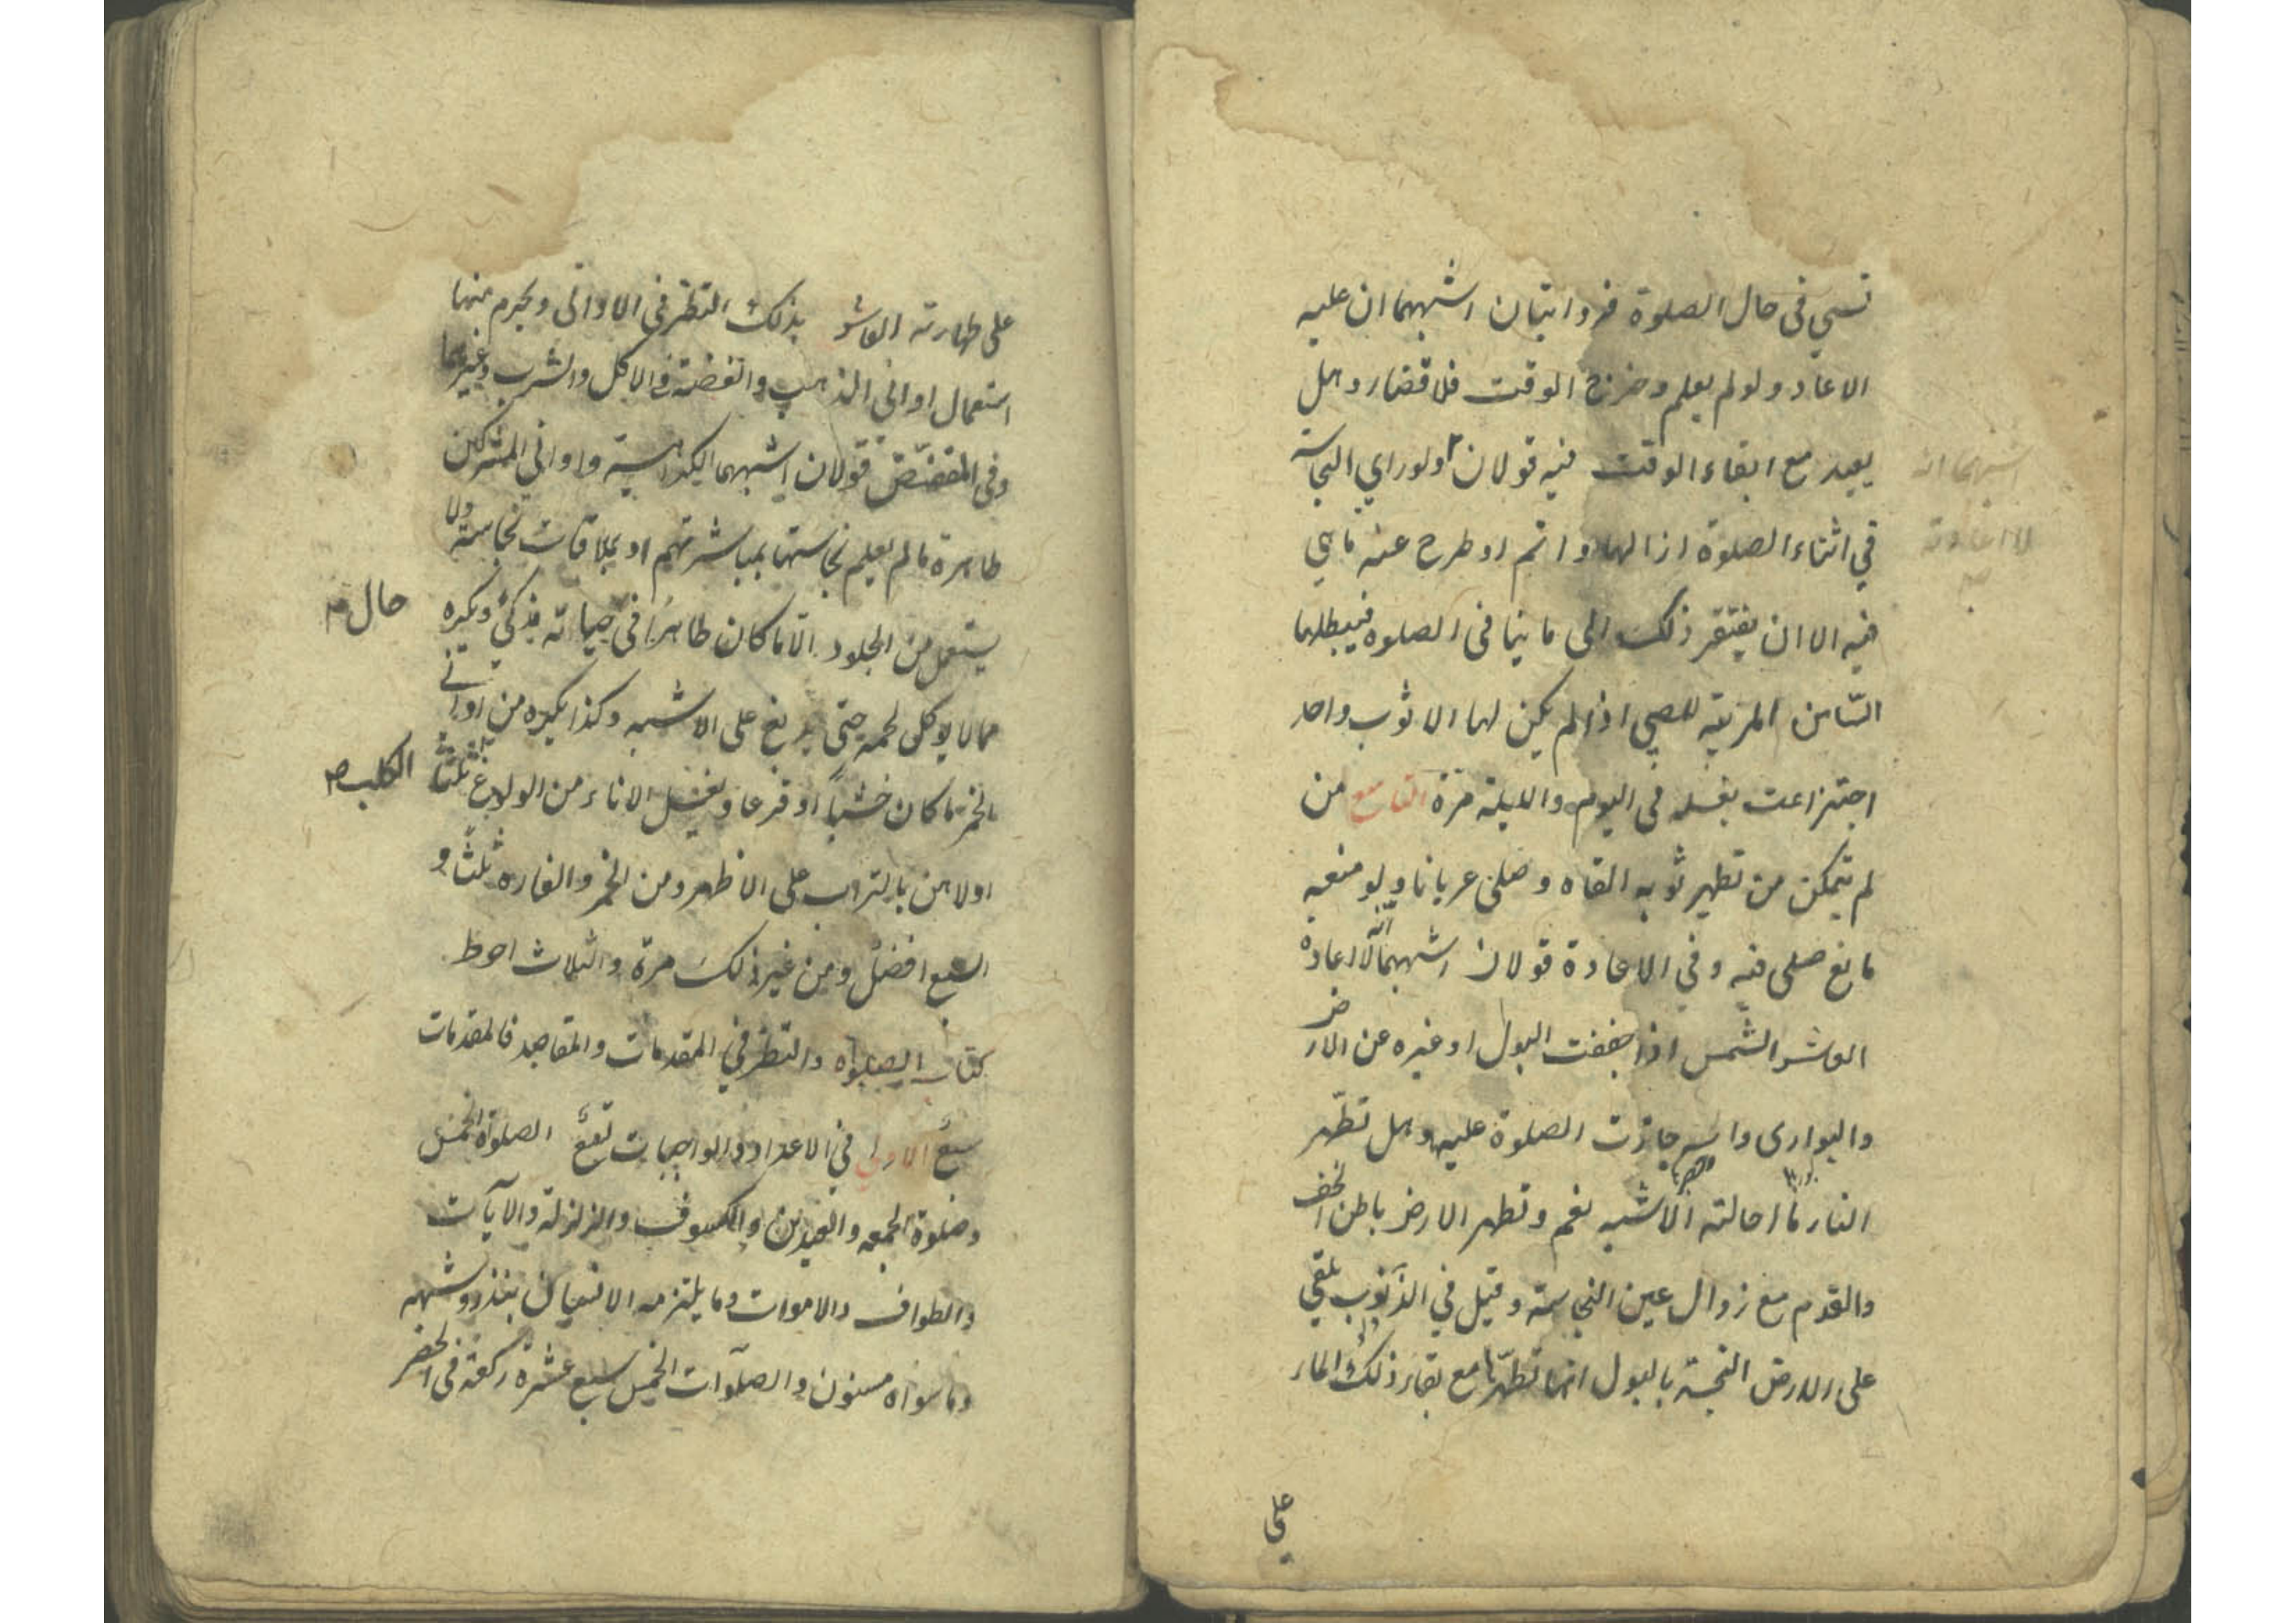 نسي فى حال الصلوة فروايتان اشبههما ان عليه
الاعاد ولو لم يعلم وخرج الوقت فلا قضاء وهل
يعيد مع ابقاء الوقت فيه قولان ولو راي النجاسة
اشبهما انه
لا اعادة
في اثناء الصلوة ازالها واتم او طرح عنه ما هي
فيه الا ان يفتقر ذلك الى ما ينافى الصلوه فيبطلها
الثامن المربية للصبي اذا لم يكن لها الا ثوب واحد
اجتزاءت بغسله فى اليوم والليلة مرة التاسع من
لم يتمكن من تطهير ثوبه القاه وصلى عريانا ولو منعه
مانع صلى فيه وفي الاعادة قولان اشبههما انه لا اعادة
العاشر الشمس اذا جففت البول او غيره عن الارض
والبوارى والحصر جازت الصلوة عليه وهل تطهر
النار ما احالته الاشبه نعم وتطهر الارض باطن الخف
والقدم مع زوال عين النجاسة وقيل في الذنوب يلقي
على الارض النجسة بالبول انها تطهرها مع بقاء ذلك الماء
على
على طهارته العاشر بذلك النظر فى الاوانى ويحرم منها
استعمال اوانى الذهب والفضة فى الاكل والشرب وغيرهما
وفى المفضض قولان اشبههما الكراهية واوانى المشركين
طاهرة ما لم يعلم نجاستها بمباشرتهم او بملاقات نجاسة ولا
يستعمل من الجلود الا ما كان طاهرا فى حياته مذكى ويكره
حال
مما لا يوكل لحمه حتى يدبغ على الاشبه وكذا يكره من اوانى
الخمر ما كان خشبا او قرعا ويغسل الاناء من الولوغ ثلثا
الكلب
اولاهن بالتراب على الاظهر ومن الخمر والفاره ثلثا و
السبع افضل ومن غير ذلك مرة والثلاث احوط
كتاب الصلوه والنظر في المقدمات والمقاصد فالمقدمات
سبع الاولى في الاعداد والواجبات تسع الصلوة الخمس
وصلوة الجمعه والعيدين والكسوف والزلزلة والآيات
والطواف والاموات وما يلتزمه الانسان بنذر وشبهه
وما سواه مسنون والصلوات الخمس سبع عشرة ركعة فى الحضر